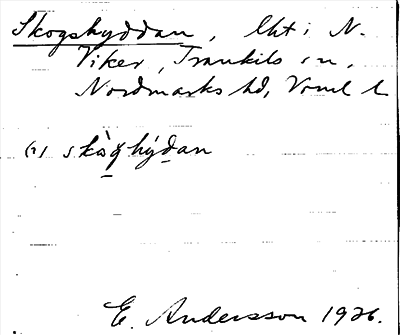 Skogshyddan, lht i N.
Viker, Trankils sn,
Nordmarks hd, Vrml l
(1) skòghýdan
E. Andersson 1926.